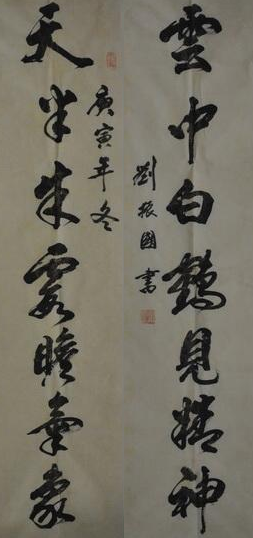 雲中白鶴見精神
天半朱霞瞻氣象
庚寅年冬
劉振國書